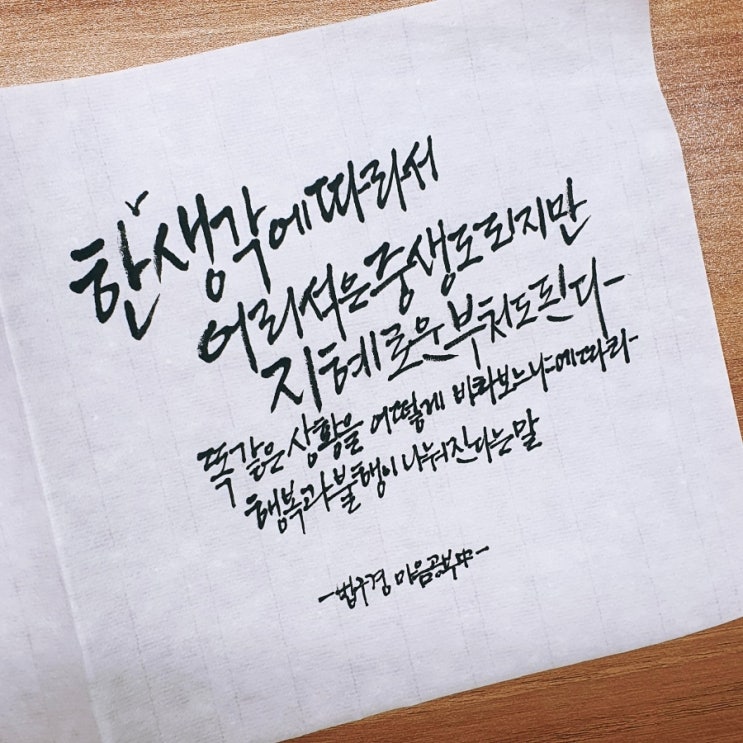 한 생각에 따라서
어리석은 중생도 되지만
지혜로운 부처도 된다
똑같은 상황을 어떻게 바라보느냐에 따라
행복과 불행이 나눠진다는 말
-법구경 마음공부 中-